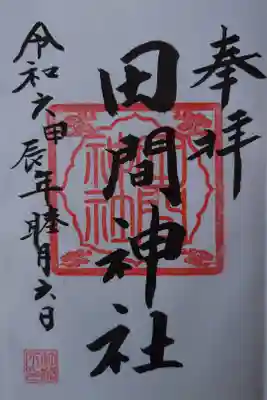 奉拝
田間神社
令和六甲辰年睦月六日